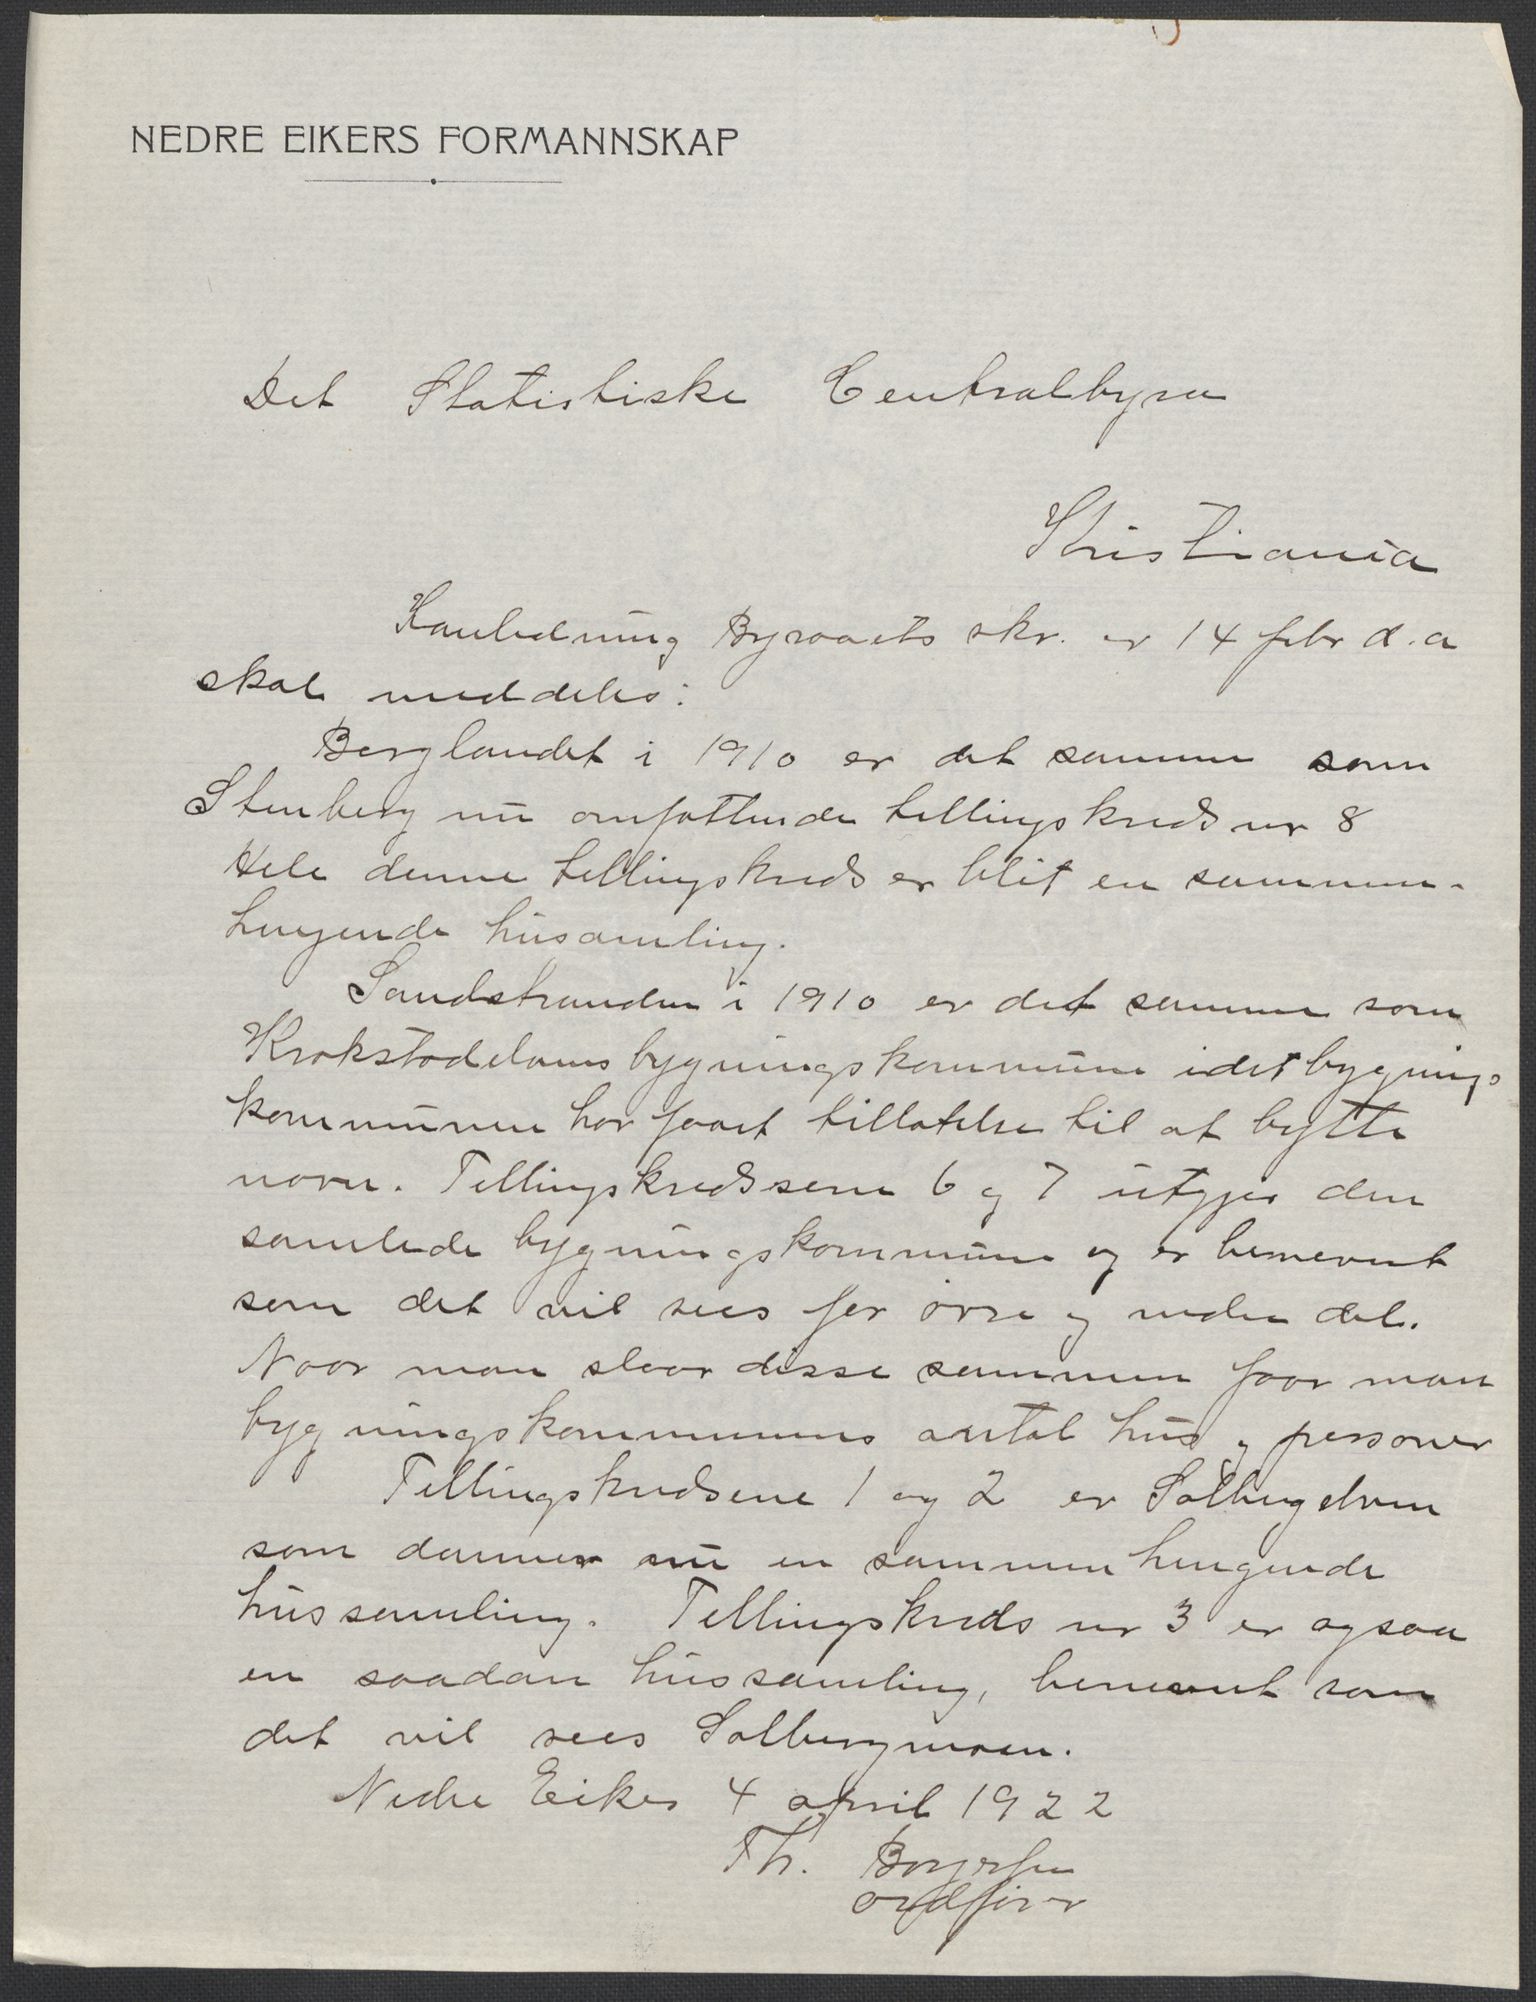 NEDRE EIKERS FORMANNSKAP
Det Statistiske Centralbyraa
Kristiania
I anledning Byraaets skr. av 14 febr d.a
skal meddeles:
Berglandet i 1910 er det samme som
Stenberg nu omfattende tellingskreds nr 8
Hele denne tellingskreds er blit en sammen-
hengende husamling.
Sandstranden i 1910 er det samme som
Krokstadelvens bygningskommune idet bygnings
kommunen har faaet tillatelse til at bytte
navn. Tellingskredsene 6 og 7 utgjør den
samlede bygningskommune og er benevnt
som det vil sees før øvre og nedre del.
Naar man slaar disse sammen faar man
bygningskommunens antal hus og personer
Tellingskredsene 1 og 2 er Solbergelven
som danner nu en sammenhengende
hussamling. Tellingskreds nr 3 er ogsaa
en saadan hussamling, benevnt som
det vil sees Solbergmoen.
Nedre Eiker 4 april 1922
Th. Borgersen
ordfører